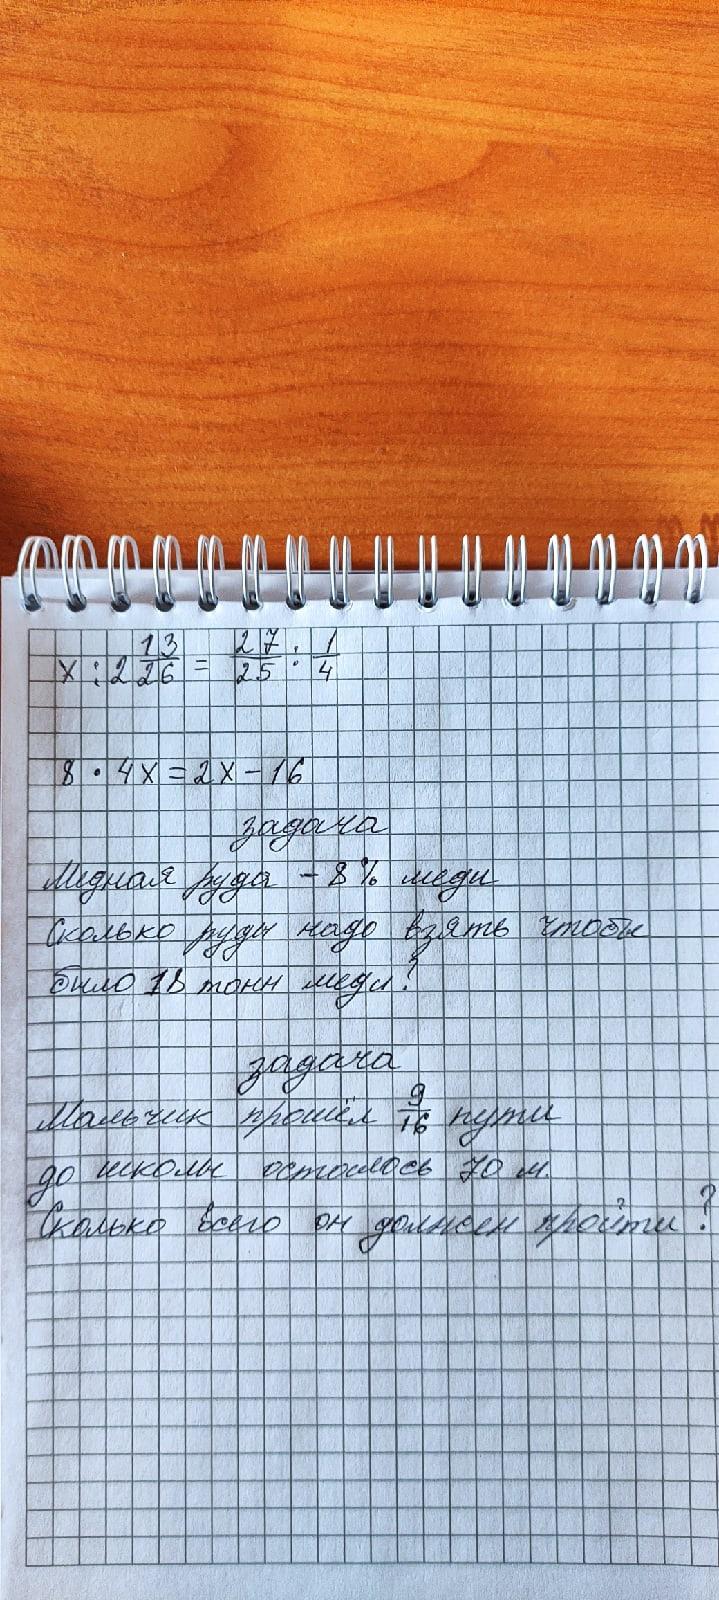 x : 2 13/26 = 27/25 : 1/4
8 · 4x = 2x - 16
задача
Медная руда - 8% меди
Сколько руды надо взять чтобы
было 18 тонн меди?
задача
Мальчик прошёл 9/16 пути
до школы осталось 70 м.
Сколько всего он должен пройти?